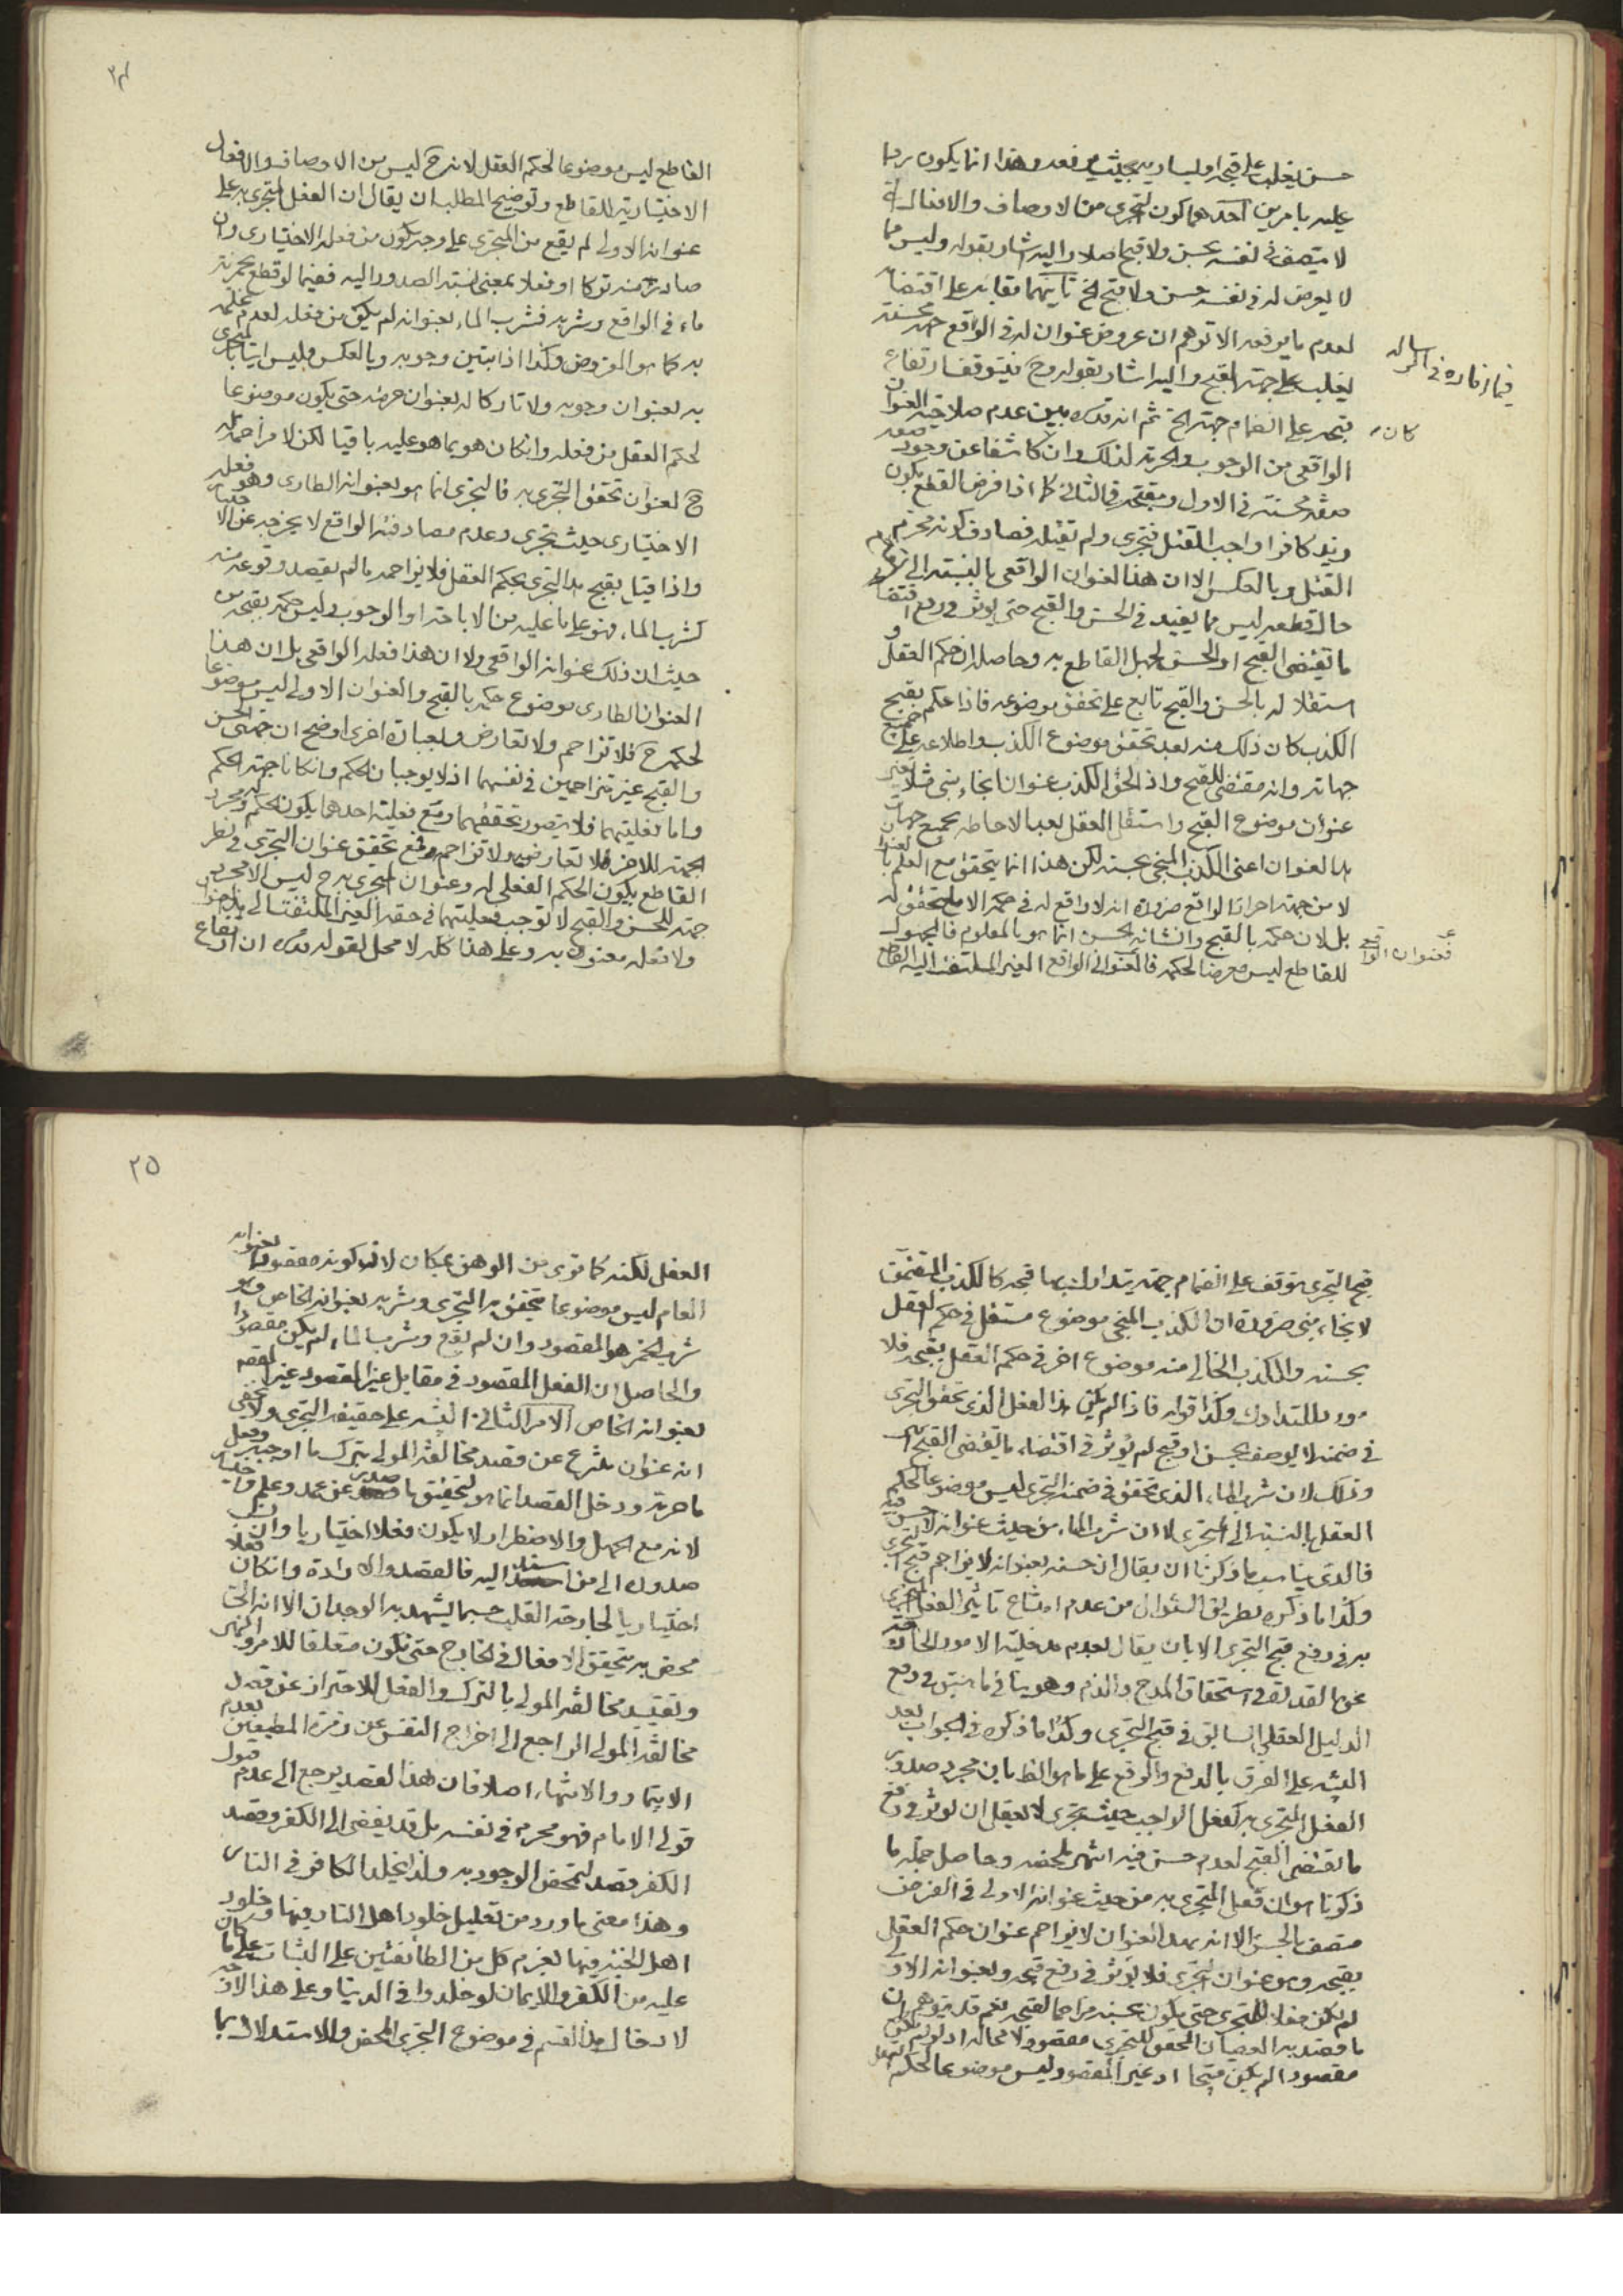 حسن يغلب على قبحه او يساويه بحيث يرفعه وهذا انما يكون برضا
عليه بامرين احدهما كون التجرى من الاوصاف والافعال التى
لا يتصف فى نفسه بحسن ولا قبح اصلا واليه اشار بقوله وليس مما
لا يعرض له فى نفسه حسن ولا قبح الخ ثانيهما بقائه على اقتضائه
لعدم ما يرفعه الا توهم ان عروض عنوان له فى الواقع جهة محسنة
يغلب على جهة القبح واليه اشار بقوله وح فيتوقف ارتفاع
قبحه على انضمام جهة الخ ثم انه قده بين عدم صلاحية العنوان
الواقعى من الوجوب والحرمة لذلك وان كاشفا عن وجود صفة
صفة محسنة فى الاول ومقبحة فى الثانى كما اذا فرض القطع بكون
زيد كافرا واجب القتل فتجرى ولم يقتله فصادف كونه محرم
القتل وبالعكس الا ان هذا العنوان الواقعى بالنسبة الى
حال قطعه ليس مما يفيد فى الحسن والقبح حتى يؤثر فى رفع اقتضاء
ما تقتضى القبح او الحسن لجهل القاطع به وحاصله ان حكم العقل
استقلالا له بالحسن والقبح تابع على تحقق موضوعه فاذا حكم بقبح
الكذب كان ذلك منه بعد تحقق موضوع الكذب واطلاعه على جميع
جهاته وانه مقتضى للقبح واذا لحق الكذب عنوان انجاء نبى مثلا يغير
عنوان موضوع القبح واستقل العقل بعد الاحاطة بجميع جهات
هذا العنوان اعنى الكذب المنجى بحسنه لكن هذا انما يتحقق مع العلم بالعنوان
لا من جهة احراز الواقع ضرورة انه لا واقع له فى حكمه الا ما يتحقق له
بل لان حكمه بالقبح وانشائه بحسن انما هو بالمعلوم فالمجهول
للقاطع ليس معرضا لحكمه فالعنوان الواقع الغير الملتفت اليه القاطع
فيما افاده فى الرسالة
كان
فعنوان الواقع
٢٤
القاطع ليس موضوعا لحكم العقل لانه ح ليس من الاوصاف والافعال
الاختيارية للقاطع وتوضيح المطلب ان يقال ان الفعل المتجرى به على
عنوانه الاولى لم يقع من المتجرى على وجه يكون من فعله الاختيارى وان
صادر منه تركا او فعلا بمعنى نسبة الصدور اليه ففيما لو قطع بخمرية
ماء فى الواقع وشربه فشرب الماء بعنوانه لم يكن من فعله لعدم علمه
به كما هو المفروض وكذا اذا تبين وجوبه وبالعكس فليس اتيانا المتجرى
به بعنوان وجوبه ولا تاركا له بعنوان حرمته حتى يكون موضوعا
لحكم العقل من فعله وان كان هو بما هو عليه باقيا لكن لا مزاحمة له
ح لعنوان تحقق التجرى به فالتجرى انما هو بعنوانه الطارى وهو فعله
الاختيارى حيث تجرى وعدم مصادفته الواقع لا يخرجه عن الاختيارية
واذا قيل بقبح هذا التجرى بحكم العقل فلا يزاحمه ما لم يقصد وقوعه منه
كشرب الماء فهو على ما عليه من الاباحة او الوجوب وليس حكمه بقبحه من
حيث ان ذلك عنوانه الواقعى ولا ان هذا فعله الواقعى بل ان هذا
العنوان الطارى موضوع حكمه بالقبح والعنوان الاولى ليس موضوعا
لحكمه ح فلا تزاحم ولا تعارض وبعبارة اخرى اوضح ان جهتى الحسن
والقبح غير متزاحمين فى نفسهما اذ لا يوجبان الحكم وان كانا جهة الحكم
واما فعليتهما فلا يتصور تحققهما ومع فعلية احدهما يكون الحكم له ومجرد
الجهة للاخر فلا تعارض ولا تزاحم ومع تحقق عنوان التجرى فى نظر
القاطع يكون الحكم الفعلى له وعنوان المتجرى به ح ليس الا مجرد
جهة للحسن والقبح لا توجب فعليتهما فى حقه الغير الملتفت الى
ولا فعله معنون به وعلى هذا كله لا محل لقوله قده ان ارتفاع
قبح التجرى يتوقف على انضمام جهة يتدارك بها قبحه كالكذب المتضمن
لانجاء نبى ضرورة ان الكذب المنجى موضوع مستقل فى حكم العقل
بحسنه والكذب الخالى منه موضوع اخر فى حكم العقل بقبحه فلا
مورد للتدارك وكذا قوله فاذا لم يكن هذا الفعل الذى تحقق التجرى
فى ضمنه لا يوصف بحسن او قبح لم يؤثر فى اقتضاء ما يقتضى القبح
وذلك لان شرب الماء الذى تحقق فى ضمنه التجرى ليس موضوعا لحكم
العقل بالنسبة الى المتجرى لا ان شرب الماء من حيث عنوانه لا حسن فيه
فالذى يناسب ما ذكرنا ان يقال ان حسنه بعنوانه لا يزاجم قبح التجرى
وكذا ما ذكره بطريق السؤال من عدم امتناع تاثير الفعل المتجرى
به فى رفع قبح التجرى الا بان يقال بعدم مدخلية الامور الخارجة
عن القدرة فى استحقاق المدح والذم وهو ينافى ما يبتنى فى دفع
الدليل العقلى السابق فى قبح التجرى وكذا ما ذكره فى الجواب بعد
البناء على الفرق بالدفع والرفع على ما هو الظاهر بان مجرد صدور
الفعل المتجرى به كفعل الواجب حيث تجرى لا يعقل ان يؤثر فى رفع
ما يقتضى القبح لعدم حسن فيه انتهى ملخصه وحاصل جملة ما
ذكرنا هو ان فعل المتجرى به من حيث عنوانه الاولى فى الفرض
متصف بالحسن الا انه بهذا العنوان لا يزاحم عنوان حكم العقل
بقبحه وهو عنوان التجرى فلا يؤثر فى رفع قبحه وبعنوانه الاولى
لم يكن فعلا للمتجرى حتى يكون بحسنه مزاحما لقبحه نعم قد يتوهم ان
ما قصد به العصيان المحقق للتجرى مقصود لا محالة اذ لو لم يكن
مقصودا لم يكن قبيحا اذ غير المقصود ليس موضوعا لحكم العقل
٢٥
العقل لكنه كما ترى من الوهن بمكان لان كونه مقصودا بعنوانه
العام ليس موضوعا يتحقق به التجرى وشربه بعنوانه الخاص وهو
شرب الخمر هو المقصود وان لم يقع وشرب الماء لم يكن مقصودا
والحاصل ان الفعل المقصود فى مقابل غير المقصود غير القصد
بعنوانه الخاص الامر الثانى البناء على حقيقة التجرى ولا يخفى
انه عنوان منتزع عن قصد مخالفة المولى بترك ما اوجبه وفعل
ما حرمه ودخل القصد انما هو لتحقيق ما صدر عن عمد وعلم واختيار
لانه مع الجهل والاضطرار لا يكون فعلا اختياريا وان نسب
صدوره الى من استند اليه فالقصد والارادة وان كان فعلا
اختياريا لجارحة القلب حسبما يشهد به الوجدان الا انه الحق
محض به يتحقق الافعال فى الخارج حتى تكون متعلقا للامر والنهى
وتقييد مخالفة المولى بالترك والفعل للاحتراز عن قصد
مخالفة المولى الراجع الى اخراج النفس عن زمرة المطيعين بعدم
الايتمار والانتهاء اصلا فان هذا القصد يرجع الى عدم قبول
قول الامام فهو محرم فى نفسه بل قد يفضى الى الكفر وقصد
الكفر قصد لتمحض الوجود به ولذا يخلد الكافر فى النار
وهذا معنى ما ورد من تعليل خلود اهل النار فيها وخلود
اهل الجنة فيها بعزم كل من الطائفتين على الثبات على ما كان
عليه من الكفر والايمان لو خلدوا فى الدنيا وعلى هذا
لا دخال هذا القسم فى موضوع التجرى المحض والاستدلال بما